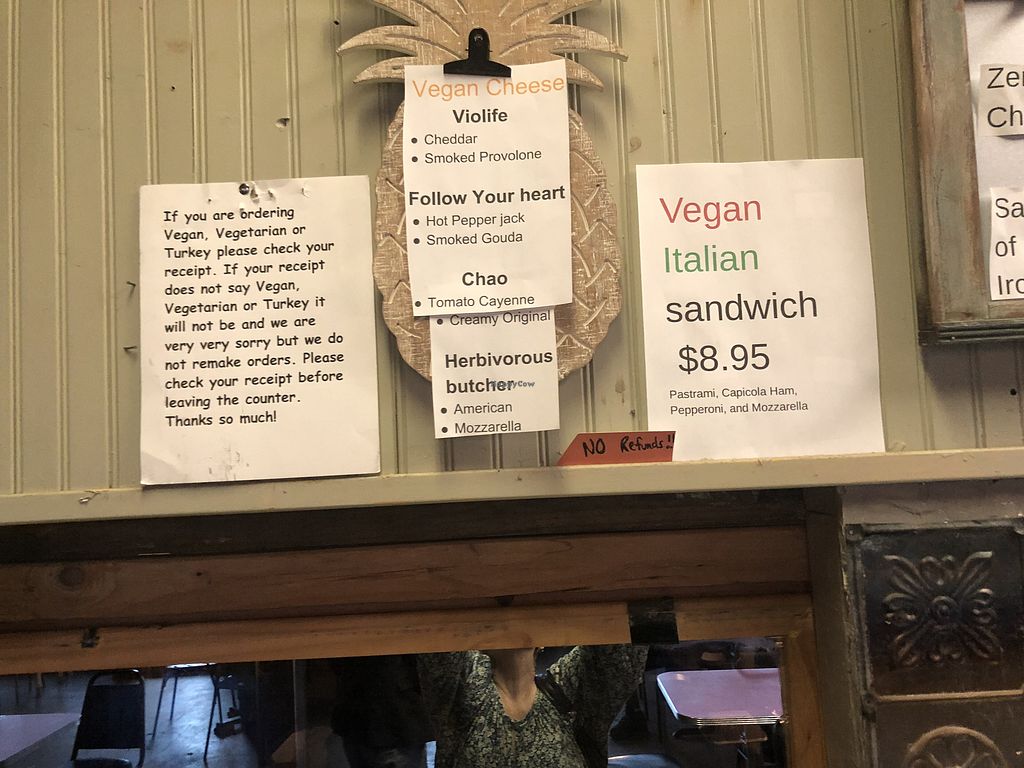 If you are ordering
Vegan, Vegetarian or
Turkey please check your
receipt. If your receipt
does not say Vegan,
Vegetarian or Turkey it
will not be and we are
very very sorry but we do
not remake orders. Please
check your receipt before
leaving the counter.
Thanks so much!
Vegan Cheese
Violife
• Cheddar
• Smoked Provolone
Follow Your heart
• Hot Pepper jack
• Smoked Gouda
Chao
• Tomato Cayenne
• Creamy Original
Herbivorous
butcher
HappyCow
• American
• Mozzarella
NO Refunds!!
Vegan
Italian
sandwich
$8.95
Pastrami, Capicola Ham,
Pepperoni, and Mozzarella
Ze
Ch
Sa
of
Iro